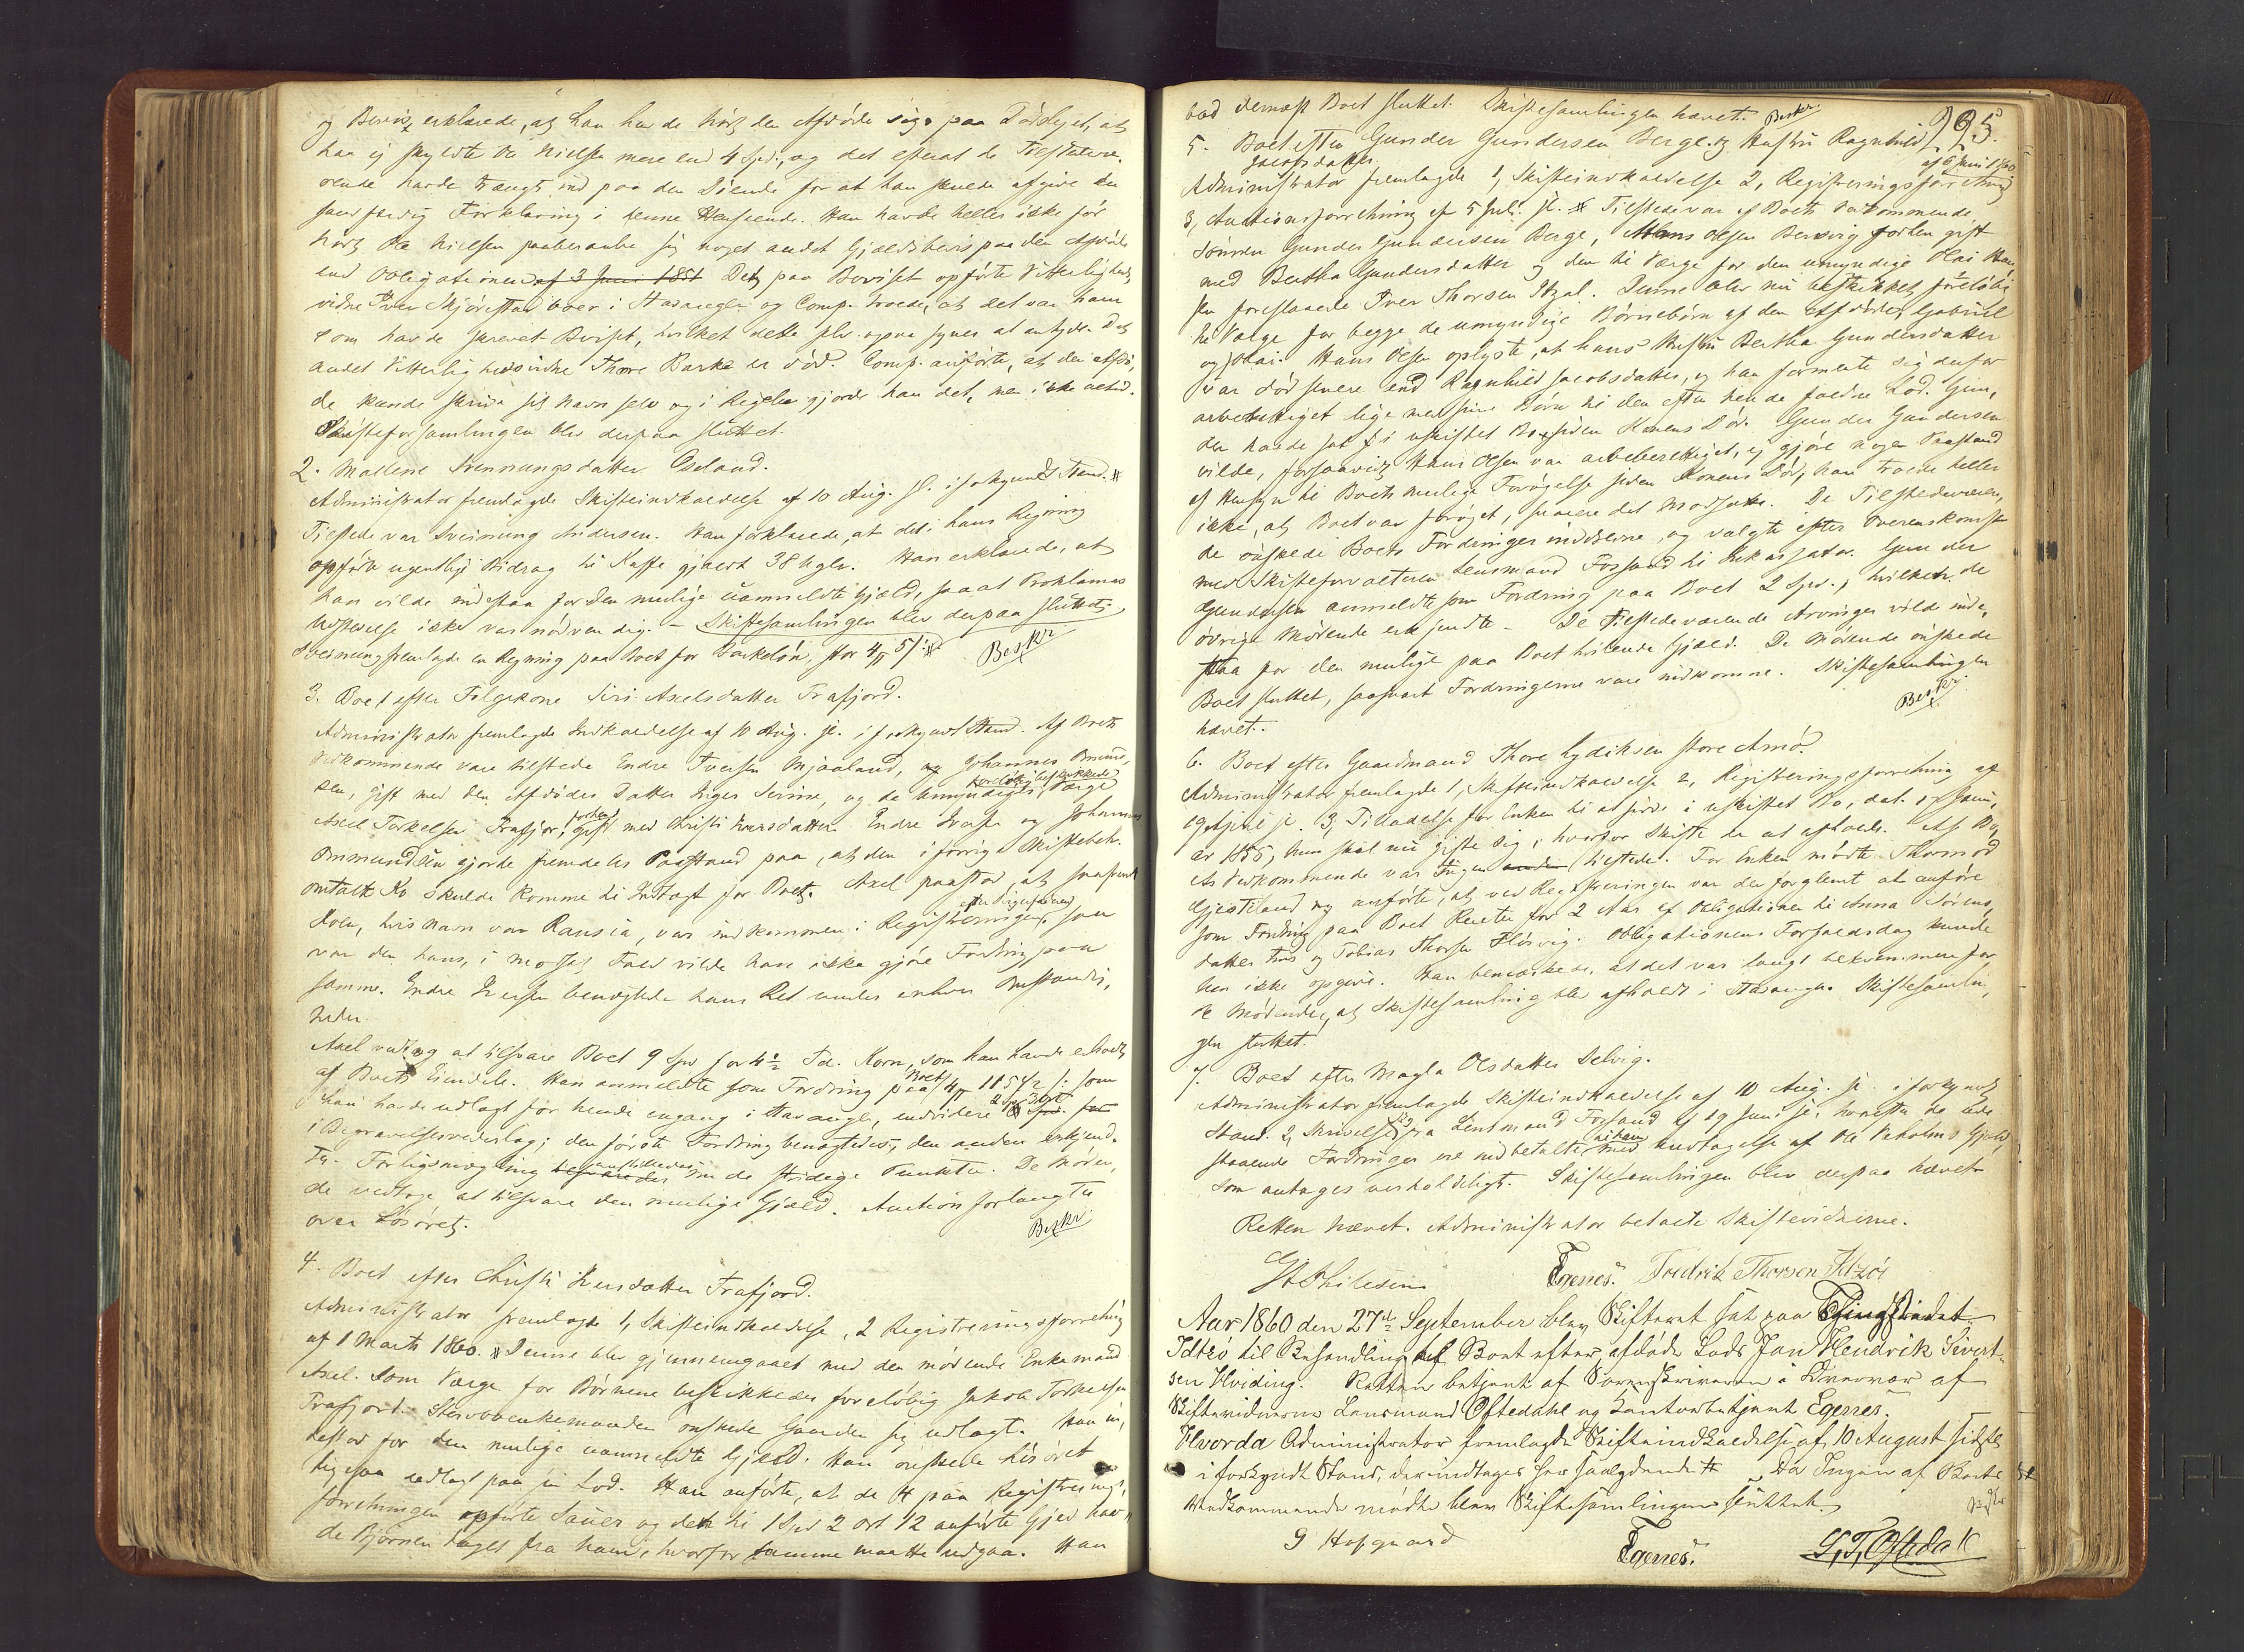 og Beviis, erklærede, at han havde hørt den Afdøde sige paa Dødslejet, at
han ej skyldte Ole Nielsen mere end 4 Spd., og det efterat de Tilstedevæ-
rende havde trængt ind paa den Døende for at han skulde afgive en
sandfærdig Forklaring i denne Henseende. Han havde heller ikke før
hørt Ole Nielsen paaberaabe sig noget andet Gjældsbevis paa den Afdøde
end Obligationen af 3 Juni 1851 Det paa Beviset opførte Vitterligheds
vidne Iver Skjørestad boer i Stavanger og Comp. troede, at det var ham
som havde skrevet Beviset, hvilket dette selv ogsaa synes at antyde. Det
andet Vitterlighedsvidne Thore Barke er død. Comp. anførte, at den Afdø-
de kunde skrive sit Navn selv og i Regelen gjorde han det, men ikke altid.
Skifteforsamlingen blev derpaa sluttet.
2. Mallene Svennungsdatter Oseland.
Administrator fremlagde Skifteindkaldelse af 10 Aug. sl. i forkyndt Stand. #
Tilstede var Sveinung Andersen. Han forklarede, at det i hans Regning
opførte ugentlige Bidrag til Kaffe gjaldt 38 Uger. Han erklærede, at
han vilde indestaa for den mulige uanmeldte Gjæld, saaat Proklamas
Udstedelse ikke var nødvendig. – Skiftesamlingen blev derpaa sluttet.
Sveinung fremlagde en Regning paa Boet for stor 4 # 5 /: # Beskr
3. Boet efter Føgekone Siri Axelsdatter Frafjord.
Administrator fremlagde Indkaldelse af 10 Aug. sl. i forkyndt Stand. Af Boets
Vedkommende vare tilstede Endre Iversen Mjaaland, og Johannes Ommund-
sen, gift med den Afdødes Datter Inger Serine, og de Umyndiges foreløbig beskikkede Værge
Axel Torkelsen Frafjord, forhen gift med Christi Iversdatter. Endre Iversen og Johannes
Ommundsen gjorde fremdeles Paastand paa, at den i forrige Skiftebeh.
omtalte Ko skulde komme til Indtægt for Boet. Axel paastod, at saafremt
Koen, hvis Navn var Ransia, var indkommen i Registreringen, saa
var den hans, i modsat Fald vilde han ikke gjøre Fordring paa
samme. Endre Iversen benægtede hans Ret under enhver Omstændig-
heder.
Axel vedtog at tilsvare Boet 9 Spd for 4½ Td. Korn, som han havde erholdt
af Boets Eiendele. Han anmeldte som Fordring paa Boet 4 # 115½ /: som
han havde udlagt for hende engang i Stavanger, endvidere 2 Spd
i Begravelsesvederlag; den første Fordring benægtedes, den anden erkjend-
tes. Forligsmægling anstilledes om de stridige Punkter. De Møden-
de vedtoge at tilsvare den mulige Gjæld. Auction forlangtes
over Løsøret. Beskr
4. Boet efter Christi Iversdatter Frafjord.
Administrator fremlagde 1, Skifteindkaldelse, 2 Registreringsforretning
af 1 Marts 1860. # Denne blev gjennemgaaet med den mødende Enkemand
Axel. Som Værge for Børnene beskikkedes foreløbig Jakob Torkelsen
Frafjord. Stervboenkemanden ønskede Gaarden sig udlagt. Han in-
destod for den mulige uanmeldte Gjæld. Han ønskede Løsøret
ligesaa udlagt paa sin Lod. Han anførte, at de 4 paa Registrerings-
forretningen opførte Sauer og den til 1 Spd 2 ort 12 anførte Gjed hav-
de Bjørnen taget fra ham, hvorfor samme maatte udgaa. Han
bad dernæst Boet sluttet. Skiftesamlingen hævet. Beskr. 295
5. Boet efter Gunder Gundersen Berge og Hustru Ragnhild
Jacobsdatter
Administrator fremlagde 1, Skifteindkaldelse 2, Registreringsforretning af 6 Juni 1860
3, Auctionsforretning af 5 Juli sl. # Tilstede var af Boets Vedkommende
Sønnen Gunder Gundersen Berge, Hans Olsen Bersvig forhen gift
med Bertha Gundersdatter og den til Værge for den umyndige Olai Han-
sen foreslaaede Iver Thorsen Idzal. Denne blev nu beskikket foreløbig
til Værge for begge de umyndige Børnebørn af den Afdøde, Gabriel
og Olai. Hans Olsen oplyste, at hans Hustru Bertha Gundersdatter
var død senere end Ragnhild Jacobsdatter, og han formente sig derfor
arveberettiget lige med sine Børn til den efter hende faldne Lod. Gun-
der havde sat i uskiftet Bo siden Konens Død. Gunder Gundersen
vilde, forsaavidt Hans Olsen var arveberettiget, ej gjøre nogen Paastand
af Hensyn til Boets mulige Forøgelse siden Konens Død, han troede heller
ikke, at Boet var forøget, snarere det Modsatte. De Tilstedeværen-
de ønskede Boets Fordringer inddrevne, og valgte efter Overenskomst
med Skifteforvalteren Lensmand Fossand til Inkassator. Gunder
Gundersen anmeldte som Fordring paa Boet 2 Spd., hvilken de
øvrige Mødende erkjendte. De tilstedeværende Arvinger vilde inde-
staa for den mulige paa Boet hvilende Gjæld. De Mødende ønskede
Boet sluttet, saasnart Fordringerne vare indkomne. Skiftesamlingen
hævet. Beskr
6. Boet efter Gaardmand Thore Lydiksen store Amø.
Administrator fremlagde 1, Skifteindkaldelse 2, Registreringsforretning af
19 April sl. 3, Tilladelse for Enken til at sidde i uskiftet Bo, dat. 19 Janu-
ar 1855, hun skal nu gifte sig, hvorfor Skifte er at afholde. Af Bo-
ets Vedkommende var Ingen tilstede. For Enken mødte Thormod
Gjesteland og anførte, at ved Registreringen var der forglemt at anføre
som Fordring paa Boet Renter for 2 Aar af Obligationen til Anna Sørens-
datter Hus og Tobias Thorsen Høsvig. Obligationens Forfaldsdag kunde
han ikke opgive. Han bemærkede, at det var langt bekvemmere for
de Mødende, at Skiftesamling blev afholdt i Stavanger. Skiftesamlin-
gen sluttet.
7. Boet efter Magla Olsdatter Selvig.
Administrator fremlagde Skifteindkaldelse af 10 Aug. sl. i forkyndt
Stand. 2, Skrivelse fra Lensmand Fossand af 19 Juni sl. hvorefter de ude-
staaende Fordringer ere indbetalte til ham med Undtagelse af Ole Vaholms Gjæld,
som antages uerholdeligt. Skiftesamlingen blev derpaa hævet
Retten hævet. Administrator betalte Skiftevidnerne.
Egenes. Fredrik Thorsen Idzøe
Aar 1860 den 27de September blev Skifteret sat paa Thingstedet
Idtzø til Behandling af Boet efter afdøde Lods Jan Hendrik Sivert-
sen Hviding. Retten betjent af Sorenskriveren i Overvær af
Skiftevidnerne Lensmand Oftedahl og Kontorbetjent Egenes.
Hvorda Administrator fremlagde Skifteindkaldelse af 10 August sidstl.
i forkyndt Stand, der indtages saalydende # Da Ingen af Boets
Vedkommende mødte blev Skiftesamlingen sluttet. Beskr
G Hofgaard
Egenes.
S. T. Oftedal